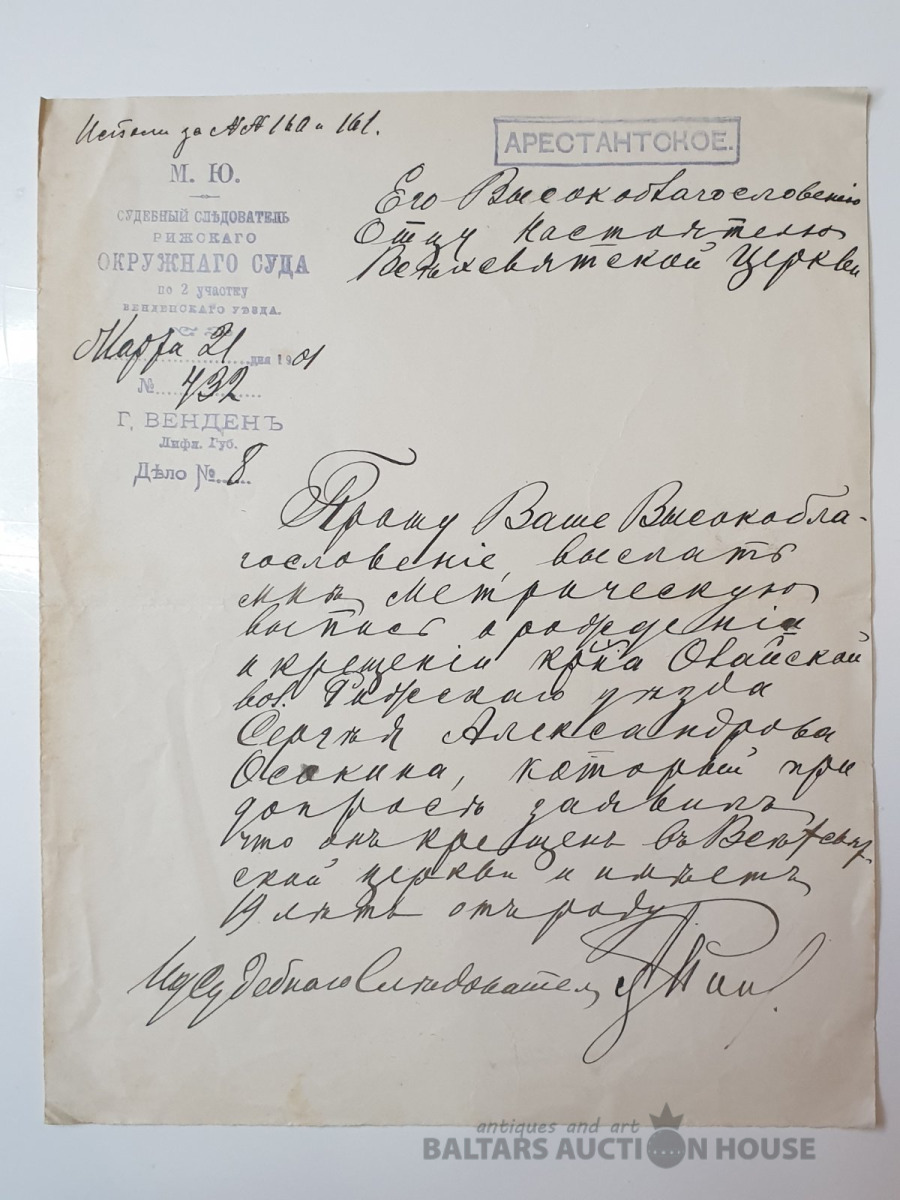 Исполн за №№ 160 и 161.
АРЕСТАНТСКОЕ.
М. Ю.
СУДЕБНЫЙ СЛѢДОВАТЕЛЬ
РИЖСКАГО
ОКРУЖНАГО СУДА
по 2 участку
ВЕНДЕНСКАГО УѢЗДА.
Марта 21 дня 1901
№ 732
Г. ВЕНДЕНЪ
Лифл. Губ.
Дѣло № 8
Его Высокоблагословенію
Отцу Настоятелю
Церкви
Прошу Ваше Высокобла-
гословеніе выслать
мнѣ метрическую
выпись о рожденіи
и крещеніи кр-на
вол. уѣзда
Сергѣя Александрова
Осокина, который при
допросѣ заявилъ
что онъ крещенъ въ
ской церкви и имѣетъ
19 лѣтъ отъ роду
Ид Судебнаго Слѣдователя
antiques and art
BALTARS AUCTION HOUSE